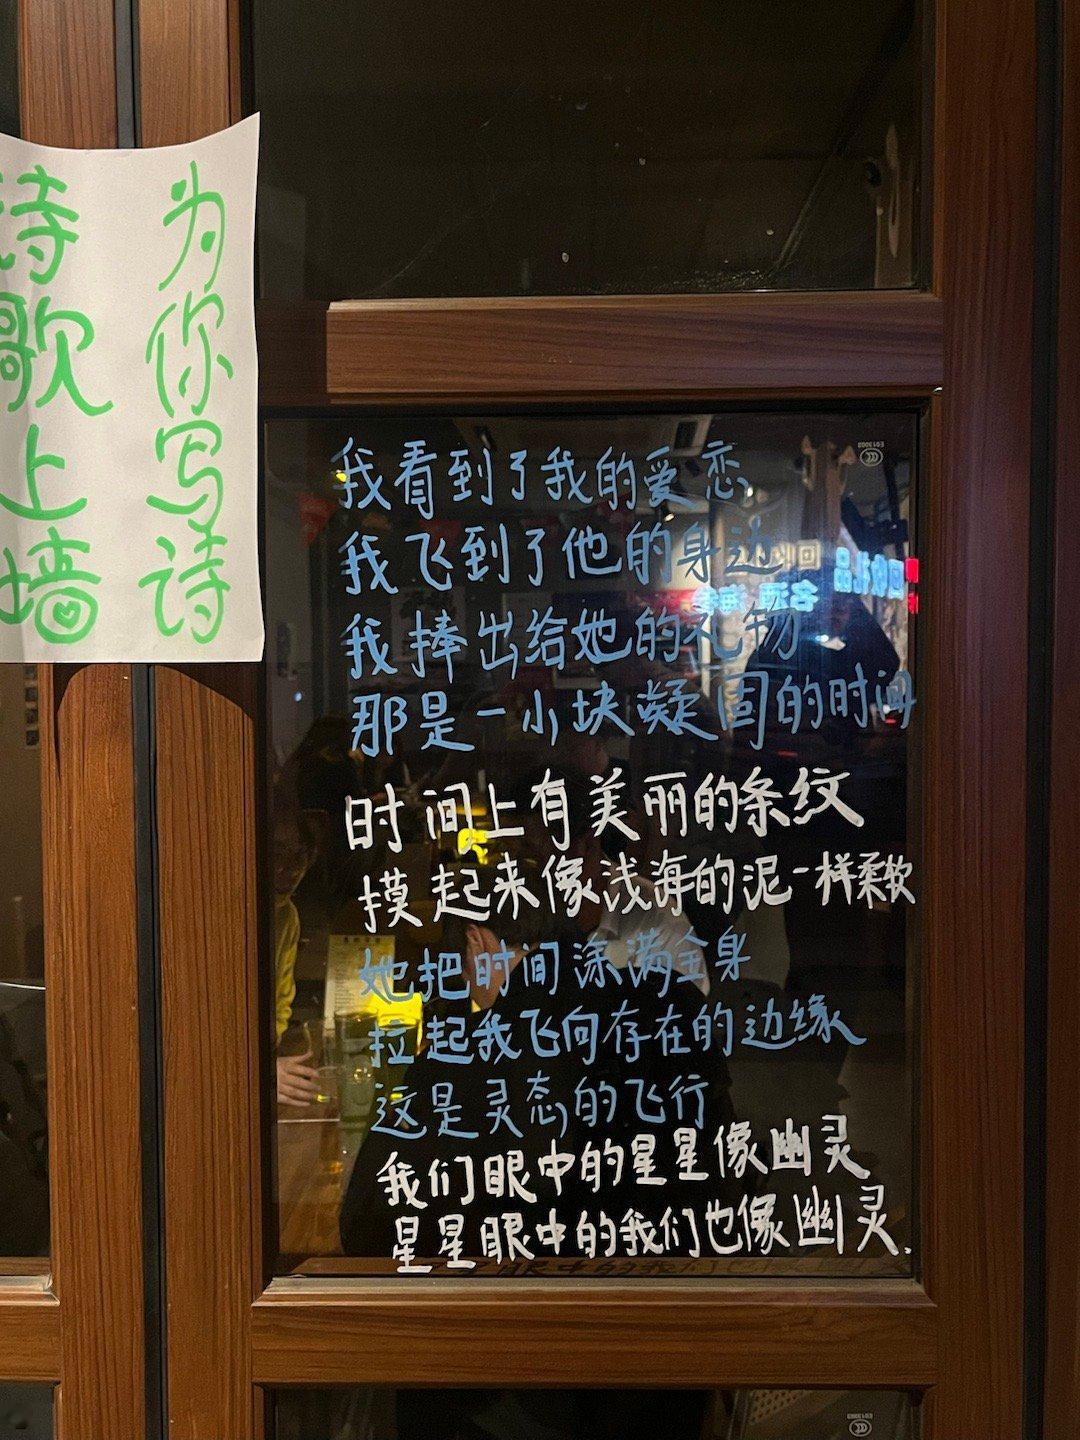 为你写诗
诗歌上墙
我看到了我的爱恋
我飞到了他的身边
我捧出给她的礼物
那是一小块凝固的时间
时间上有美丽的条纹
摸起来像浅海的泥一样柔软
她把时间涂满全身
拉起我飞向存在的边缘
这是灵态的飞行
我们眼中的星星像幽灵
星星眼中的我们也像幽灵.